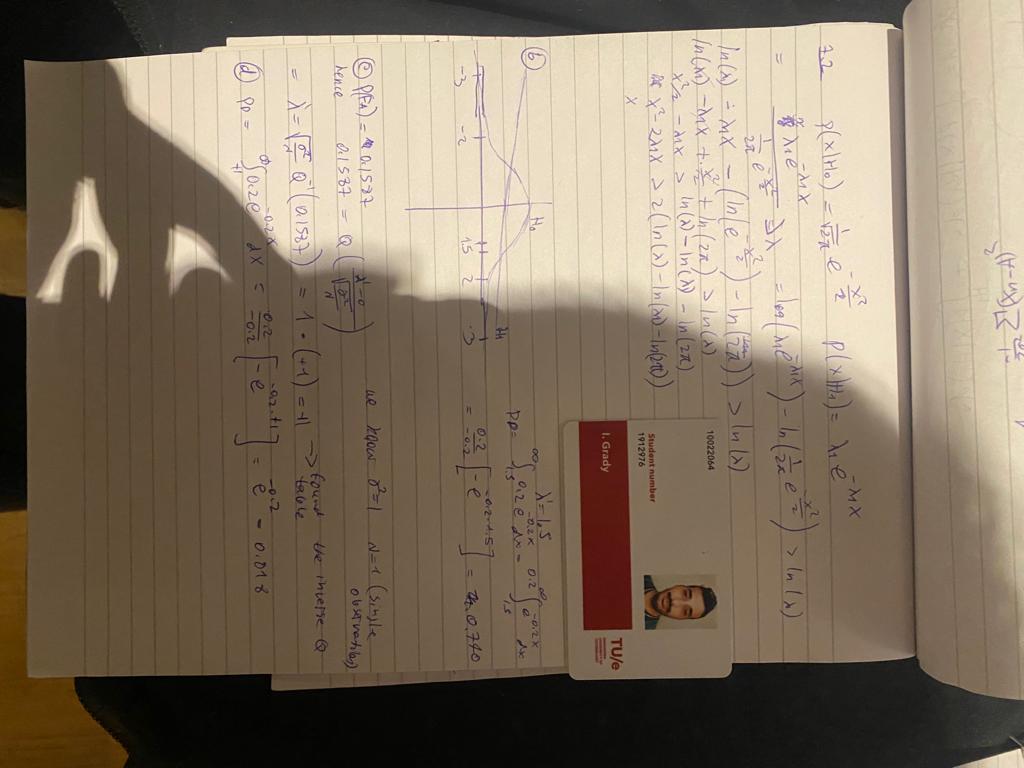 7.2 p(x|H0) = 1/√2π e^(-x²/2) p(x|H1) = λ1 e^(-λ1x)
= λ1 e^(-λ1x) / (1/2π e^(-x²/2)) > λ = log(λ1 e^(-λ1x)) - ln(1/2π e^(-x²/2)) > ln(λ)
ln(λ) - λ1x - (ln(e^(-x²/2)) - ln(2π)) > ln(λ)
ln(λ1) - λ1x + x²/2 + ln(2π) > ln(λ)
x²/2 - λ1x > ln(λ) - ln(λ) - ln(2π)
x² - 2λ1x > 2(ln(λ) - ln(λ) - ln(2π))
x
b)
H0
H1
-3 -2 1.5 2 3
λ' = 1.5
PD = ∫_1.5^∞ 0.2 e^(-0.2x) dx = 0.2 ∫_1.5^∞ e^(-0.2x) dx
= 0.2/-0.2 [-e^(-0.2·1.57)] = 0.740
c) = 0.1587 we know σ² = 1 N = 1 (single
observation)
hence 0.1587 = Q((λ'-0)/√(σ²/N))
= λ' = √(σ²/N) Q⁻¹(0.1587) = 1 · (+1) = 1 → found the inverse Q
table
d) PD = ∫_1^∞ 0.2 e^(-0.2x) dx = 0.2/-0.2 [-e^(-0.2·1)] = e^(-0.2) = 0.818
10022064
Student number
1912976
I. Grady
TU/e